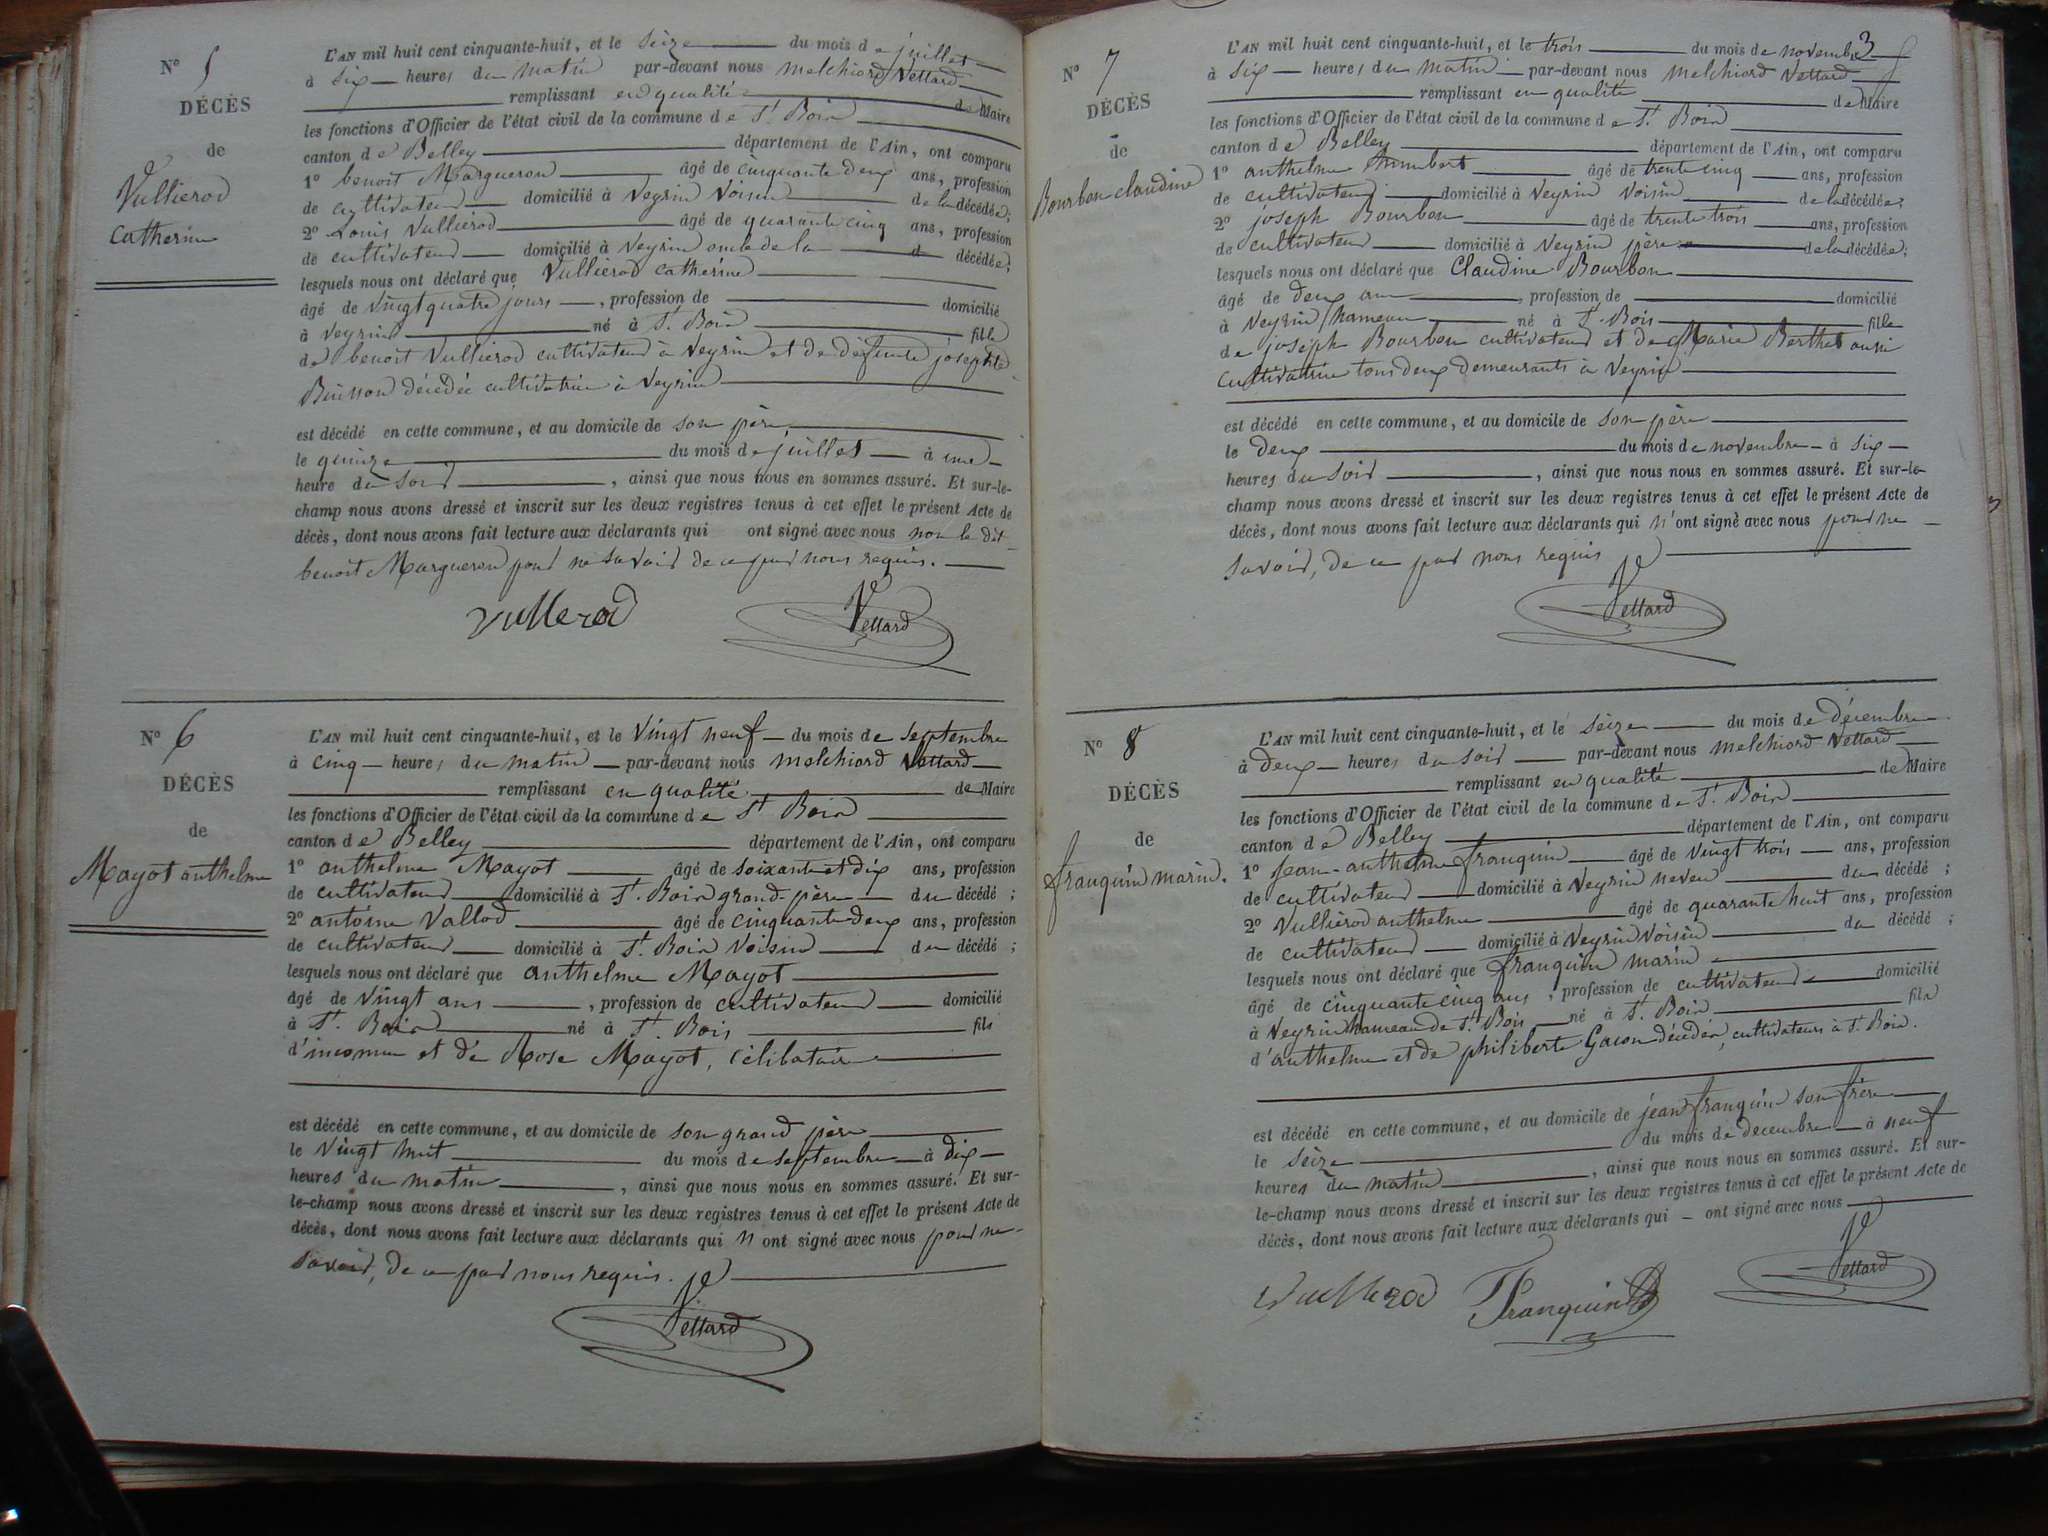 N° 5
DÉCÈS
de
Vullierod
Catherine
L'AN mil huit cent cinquante-huit, et le seize du mois de juillet
à six heures du matin par-devant nous melchiord Vettard
remplissant en qualité de Maire
les fonctions d'Officier de l'état civil de la commune de St. Bois
canton de Belley département de l'Ain, ont comparu
1° benoit Margueron âgé de cinquante deux ans, profession
de cultivateur domicilié à Veyrin voisin de la décédée;
2° Louis Vullierod âgé de quarante cinq ans, profession
de cultivateur domicilié à Veyrin oncle de la décédée;
lesquels nous ont déclaré que Vullierod Catherine
âgé de vingt quatre jours, profession de domicilié
à Veyrin né à St. Bois fille
de benoit Vullierod cultivateur à Veyrin et de défunte josephte
Buisson décédée cultivatrice à Veyrin
est décédé en cette commune, et au domicile de son père,
le quinze du mois de juillet à une
heure du soir, ainsi que nous nous en sommes assuré. Et sur-le-
champ nous avons dressé et inscrit sur les deux registres tenus à cet effet le présent Acte de
décès, dont nous avons fait lecture aux déclarants qui ont signé avec nous non le dit
benoit Margueron pour ne savoir de ce par nous requis.
Vullerod Vettard
N° 6
DÉCÈS
de
Mayot anthelme
L'AN mil huit cent cinquante-huit, et le vingt neuf du mois de septembre
à cinq heures du matin par-devant nous melchiord Vettard
remplissant en qualité de Maire
les fonctions d'Officier de l'état civil de la commune de St Bois
canton de Belley département de l'Ain, ont comparu
1° anthelme Mayot âgé de soixante et dix ans, profession
de cultivateur domicilié à St. Bois grand-père du décédé;
2° antoine Vallod âgé de cinquante deux ans, profession
de cultivateur domicilié à St. Bois voisin du décédé;
lesquels nous ont déclaré que anthelme Mayot
âgé de vingt ans, profession de cultivateur domicilié
à St. Bois né à St. Bois fils
d'inconnu et de Rose Mayot, célibataire
est décédé en cette commune, et au domicile de son grand père
le vingt huit du mois de septembre à dix
heures du matin, ainsi que nous nous en sommes assuré. Et sur-
le-champ nous avons dressé et inscrit sur les deux registres tenus à cet effet le présent Acte de
décès, dont nous avons fait lecture aux déclarants qui n'ont signé avec nous pour ne
savoir, de ce par nous requis.
Vettard
3
N° 7
DÉCÈS
de
Bourbon claudine
L'AN mil huit cent cinquante-huit, et le trois du mois de novembre
à six heures du matin par-devant nous melchiord Vettard
remplissant en qualité de Maire
les fonctions d'Officier de l'état civil de la commune de St. Bois
canton de Belley département de l'Ain, ont comparu
1° anthelme humbert âgé de trente cinq ans, profession
de cultivateur domicilié à Veyrin voisin de la décédée;
2° joseph Bourbon âgé de trente trois ans, profession
de cultivateur domicilié à Veyrin père de la décédée;
lesquels nous ont déclaré que Claudine Bourbon
âgé de deux ans, profession de domicilié
à Veyrin (hameau né à St. Bois fille
de joseph Bourbon cultivateur et de Marie Berthet aussi
cultivatrice tous deux demeurants à Veyrin
est décédé en cette commune, et au domicile de son père
le deux du mois de novembre à six
heures du soir, ainsi que nous nous en sommes assuré. Et sur-le-
champ nous avons dressé et inscrit sur les deux registres tenus à cet effet le présent Acte de
décès, dont nous avons fait lecture aux déclarants qui n'ont signé avec nous pour ne
savoir, de ce par nous requis
Vettard
N° 8
DÉCÈS
de
franquin marin.
L'AN mil huit cent cinquante-huit, et le seize du mois de décembre
à deux heures du soir par-devant nous melchiord Vettard
remplissant en qualité de Maire
les fonctions d'Officier de l'état civil de la commune de St. Bois
canton de Belley département de l'Ain, ont comparu
1° jean-anthelme franquin âgé de vingt trois ans, profession
de cultivateur domicilié à Veyrin neveu du décédé;
2° Vullierod anthelme âgé de quarante huit ans, profession
de cultivateur domicilié à Veyrin voisin du décédé;
lesquels nous ont déclaré que franquin marin
âgé de cinquante cinq ans, profession de cultivateur domicilié
à Veyrin hameau de St. Bois né à St. Bois fils
d'anthelme et de philiberte Gacon décédés, cultivateurs à St. Bois.
est décédé en cette commune, et au domicile de jean franquin son frère
le seize du mois de decembre à neuf
heures du matin, ainsi que nous nous en sommes assuré. Et sur-
le-champ nous avons dressé et inscrit sur les deux registres tenus à cet effet le présent Acte de
décès, dont nous avons fait lecture aux déclarants qui ont signé avec nous
Vullierod Franquin Vettard